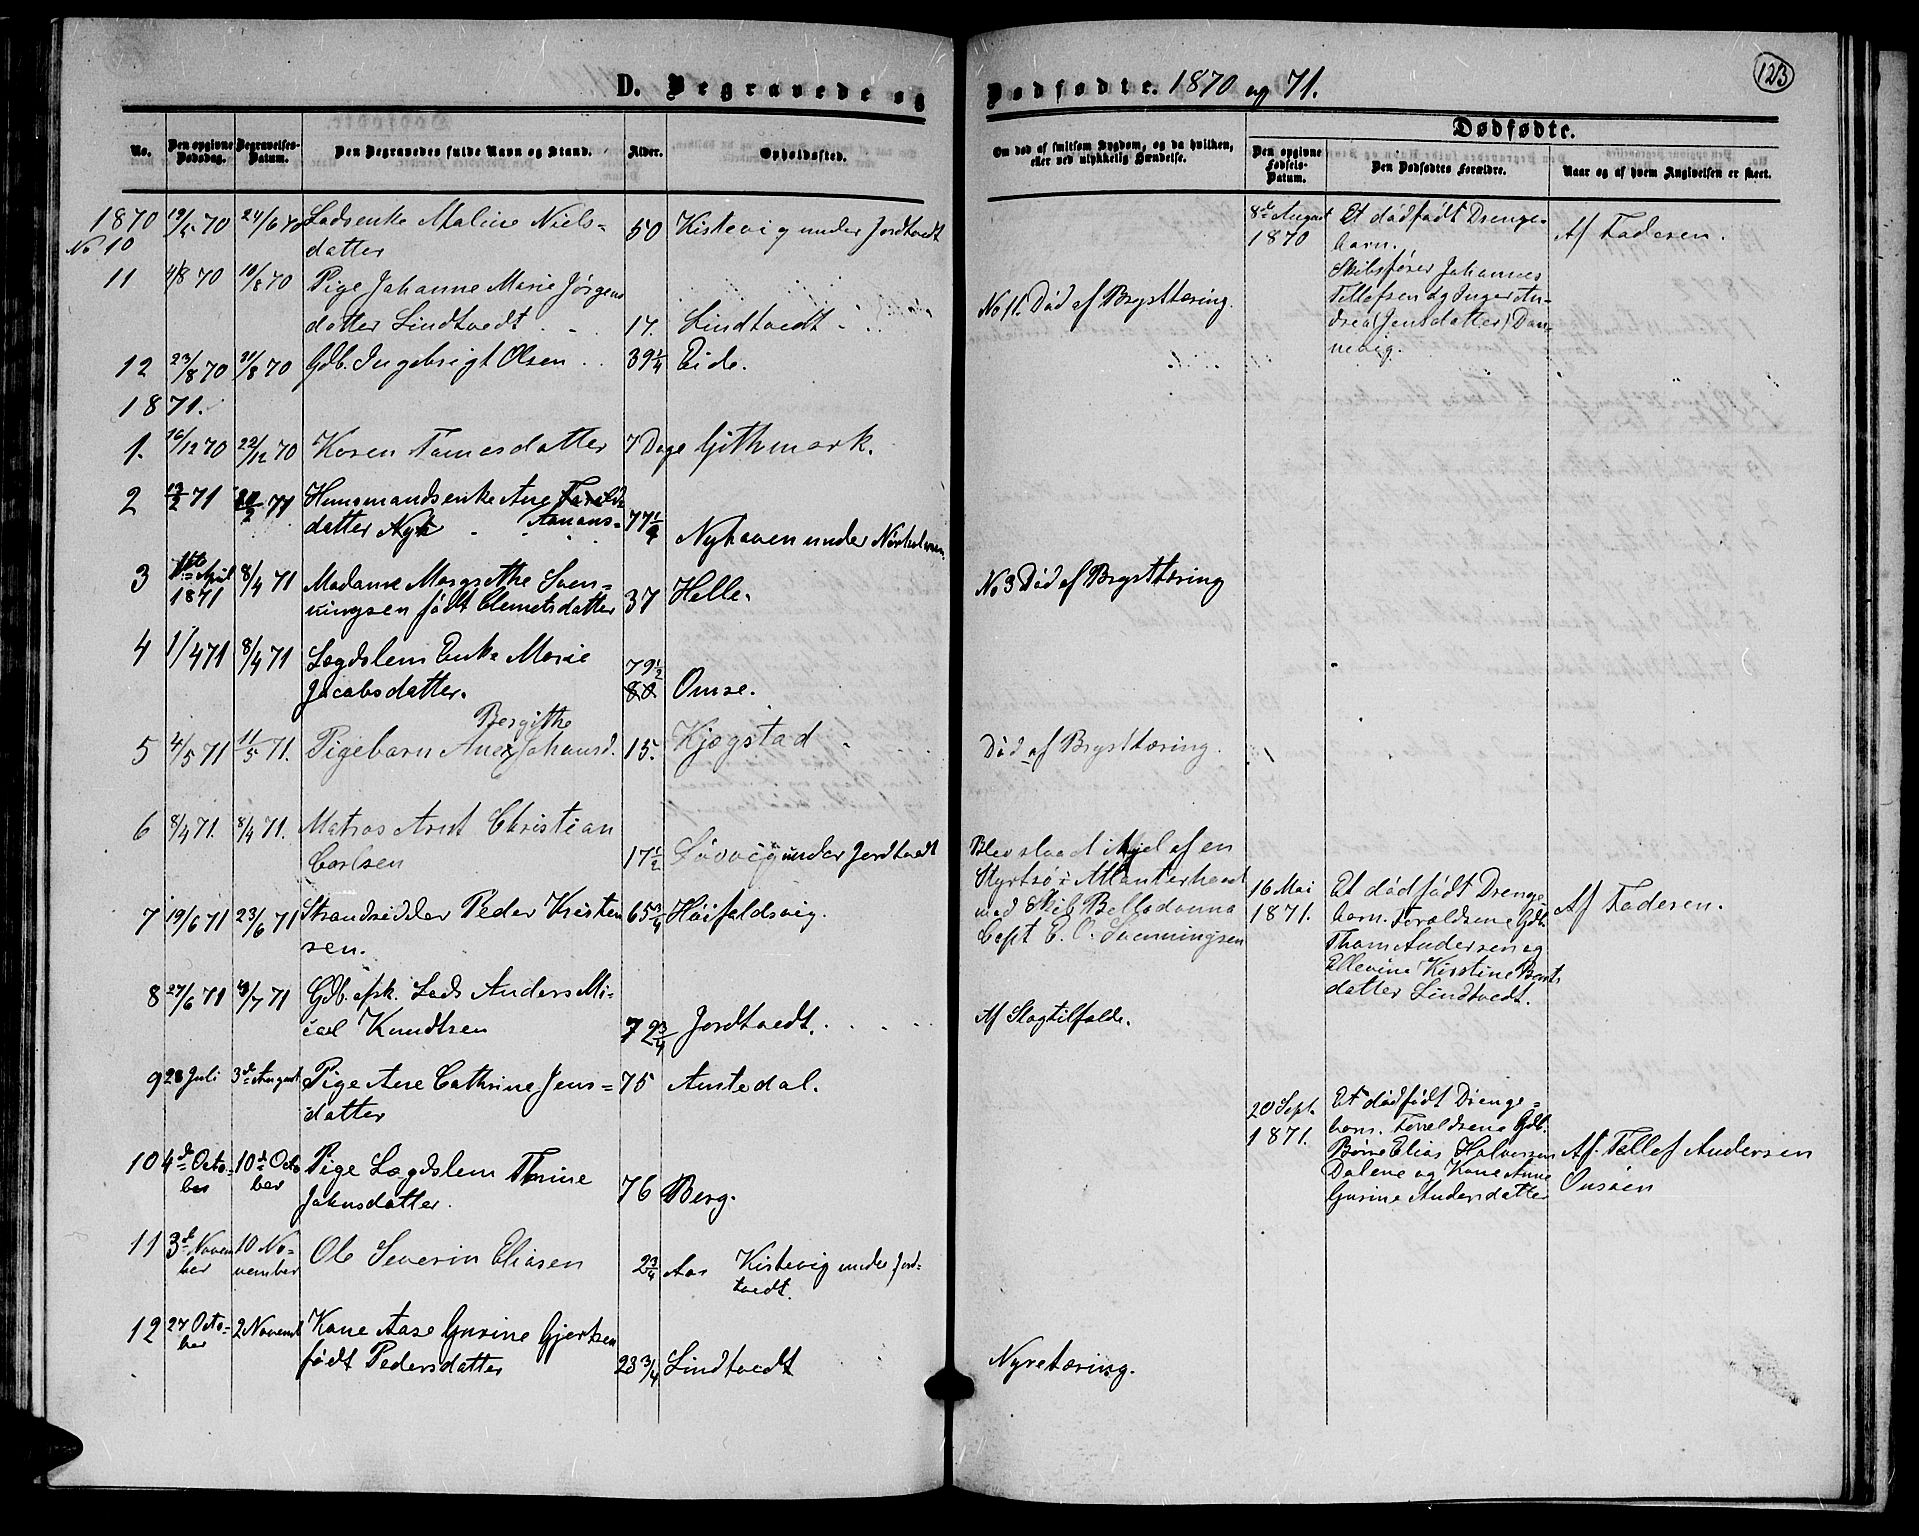 123
D. Begravede og Dødfødte. 1870 og 71.
No.
Den opgivne Dødsdag.
Begravelses-Datum.
Den Begravedes fulde Navn og Stand.
Alder.
Opholdssted.
Om død af smitsom Sygdom, og da hvilken, eller ved ulykkelig Hændelse.
Dødfødte.
Den opgivne Fødsels-Datum.
Den Dødfødtes Forældre.
Naar og af hvem Angivelsen er skeet.
1870
No 10 19/5 70 24/6 70 Ladsenke Maline Niels=
datter 50 Kistevig under Jordtvedt
11 4/8 70 10/8 70 Pige Johanne Marie Jørgens
datter Lindtvedt 17. Lindtvedt
No 11. Død af Brysttæring.
12 23/8 70 31/8 70 Gdb. Ingebrigt Olsen 39 1/4 Eide.
1871.
1. 16/12 70 22/12 70 Karen Tomesdatter 7 Dage Githmark.
2 13/2 71 20/2 71 Huusmandsenke Ane
datter Nyh Aanons= 77 1/2 Nyhaven under Nørholmen.
3 1ste April
1871 8/4 71 Madame Margrethe Sven=
ningsen født Clemetsdatter 37 Helle.
No 3 Død af Brysttæring
4 1/4 71 8/4 71 Lægdslem Enke Marie
Jacobsdatter. 79 1/2
80. Omse.
5 4/5 71 11/5 71. Pigebarn Ane Bergithe Johansd. 15. Kjøgstad
Død af Brysttæring.
6 8/4 71. 8/4 71. Matros Arnt Christian
Carlsen 17 1/2 Løvvig under Jordtvedt
Blev slaaed ihjel af en
Styrtsø i Atlanterhavet
med Skib Belladonna
Capt E. C. Svenningsen
7 19/6 71 23/6 71 Strandsidder Peder Kristen
sen. 65 3/4 Høifaldsvig.
8 27/6 71 3/7 71 Gdb. afsk. Lods Anders Mi=
cael Knudtsen 72 3/4 Jordtvedt.
Af Slagtilfælde.
9 28 Juli 3de August Pige Ane Cathrine Jens=
datter 75 Amtedal.
10 4de Octo=
ber 10de Octo
ber Pige Lægdslem Thrine
Jahnsdatter. 76 Berg.
11 3de Novem
ber 10 No=
vember Ole Severin Eliasen 2 3/4 Aar Kistevig under Jord=
tvedt.
12 27 Octo=
ber 2 Novemb Kone Aase Gurine Gjertsen
født Pedersdatter 23 3/4 Lindtvedt
Nyretæring.
8de August
1870
Et dødfødt Drenge=
barn.
Skibsfører Johannes
Tellefsen og Inger An=
drea (Jensdatter) Dan=
nevig.
Af Faderen.
16 Mai
1871.
Et dødfødt Drenge
barn. Forældrene Gdb.
Thom Andersen og
Ellevine Kirstine Bents
datter Lindtvedt.
Af Faderen.
20 Sept.
1871.
Et dødfødt Drenge=
barn. Forældrene Gdb.
Børre Elias Halvorsen
Dalene og Kone Anne
Gurine Andersdatter
Af Tellef Andersen
Omsøen